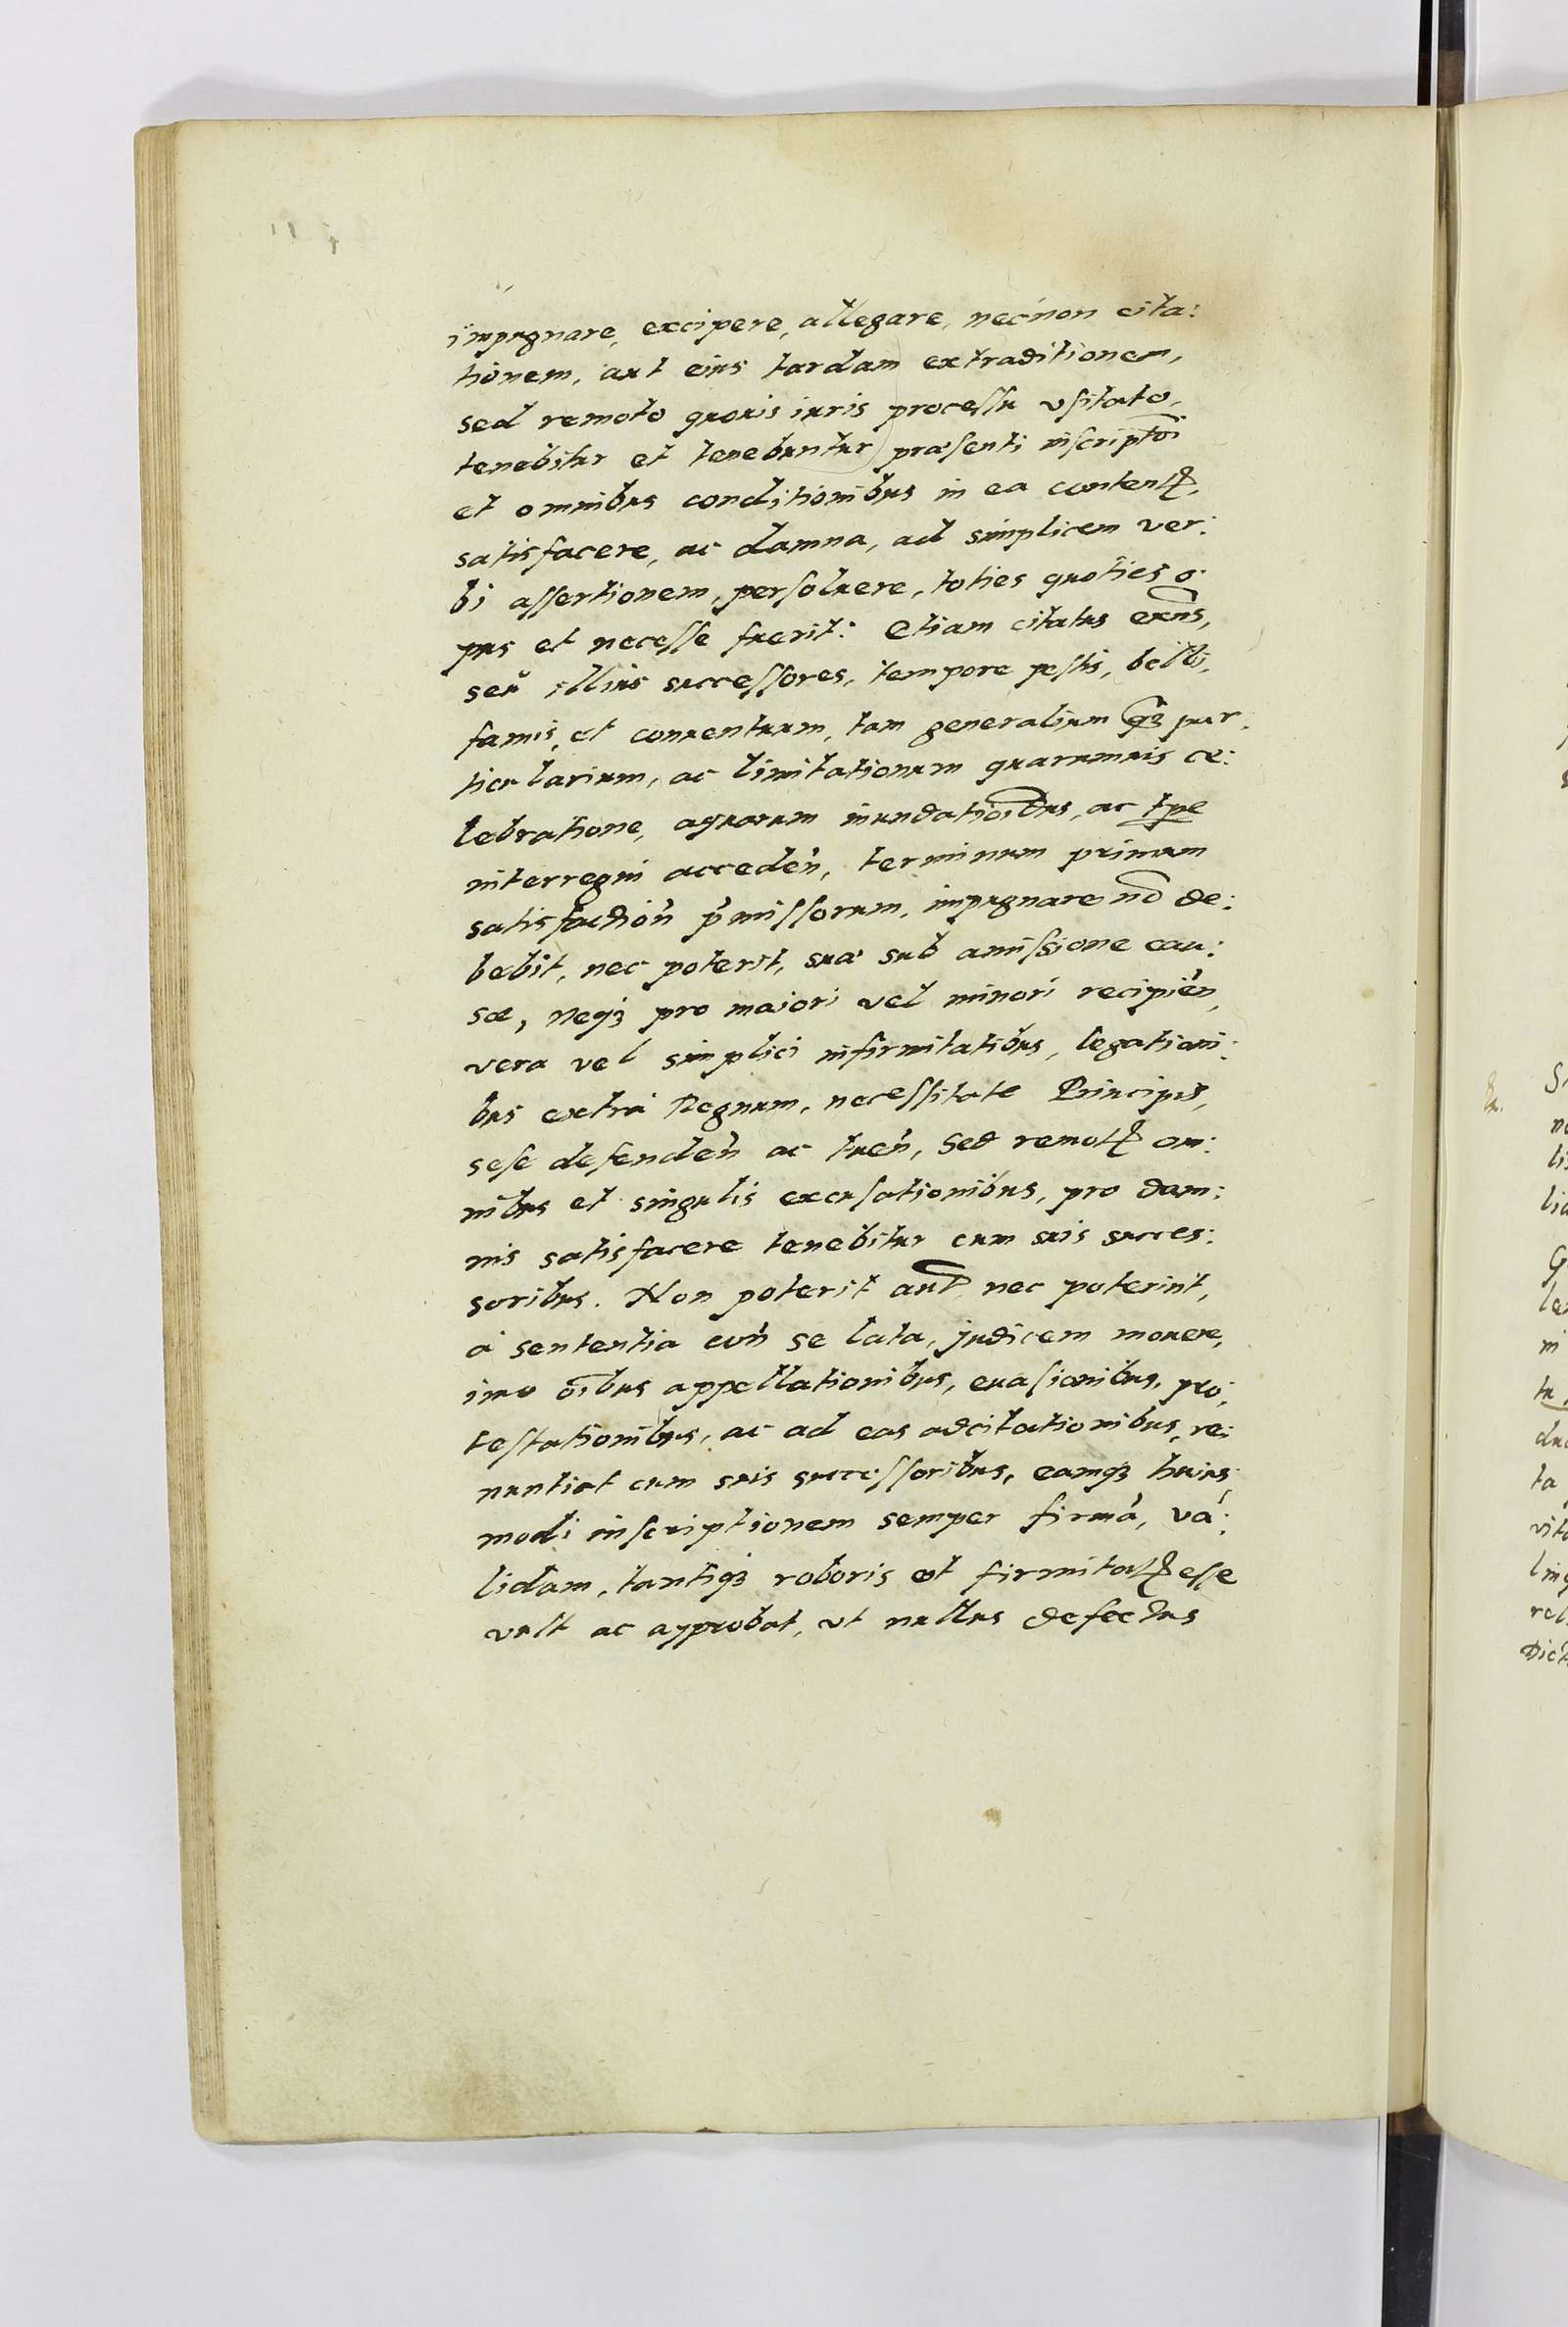 impugnare, excipere, allegare, nec non cita:
tionem, aut eius tardam extraditionem,
sed remoto quouis iuris processu vsitato,
tenebitur et tenebuntur præsenti inscriptōi
et omnibus conditionibus in ea contentꝭ,
satisfacere, ac damna, ad simplicem ver:
bi assertionem, persoluere, toties quoties o:
pus et necesse fuerit: Etiam citatus exn̄s,
seu illius successores, tempore pestis, belli,
famis, et conuentuum, tam generalium qꝫ par:
ticularium, ac limitationum quarumuis ce:
lebratione, aquarum inundatiōibus, ac tpe
interregni acceden̄, terminum primum
satisfaction̄ p̄missorum, impugnare nō de:
bebit, nec poterit, suæ sub amissione cau:
sæ, neqꝫ pro maiori vel minori recipien̄,
vera vel simplici infirmitatibus, legationi:
bus extra Regnum, necessitate Principis,
sese defenden̄ ac tuen̄, Sed remotꝭ om:
nibus et singulis excusationibus, pro dam:
nis satisfacere tenebitur cum suis succes:
soribus. Non poterit aut̄ nec poterint,
à sententia con̄ se lata, judicem mouere,
imo oībus appellationibus, euasionibus, pro:
testationibus, ac ad eas adcitationibus, re:
nuntiat cum suis successoribus, eamqꝫ huius:
modi inscriptionem semper firmā, va:
lidam, tantiqꝫ roboris et firmitatꝭ esse
vult ac approbat, vt nullus defectus